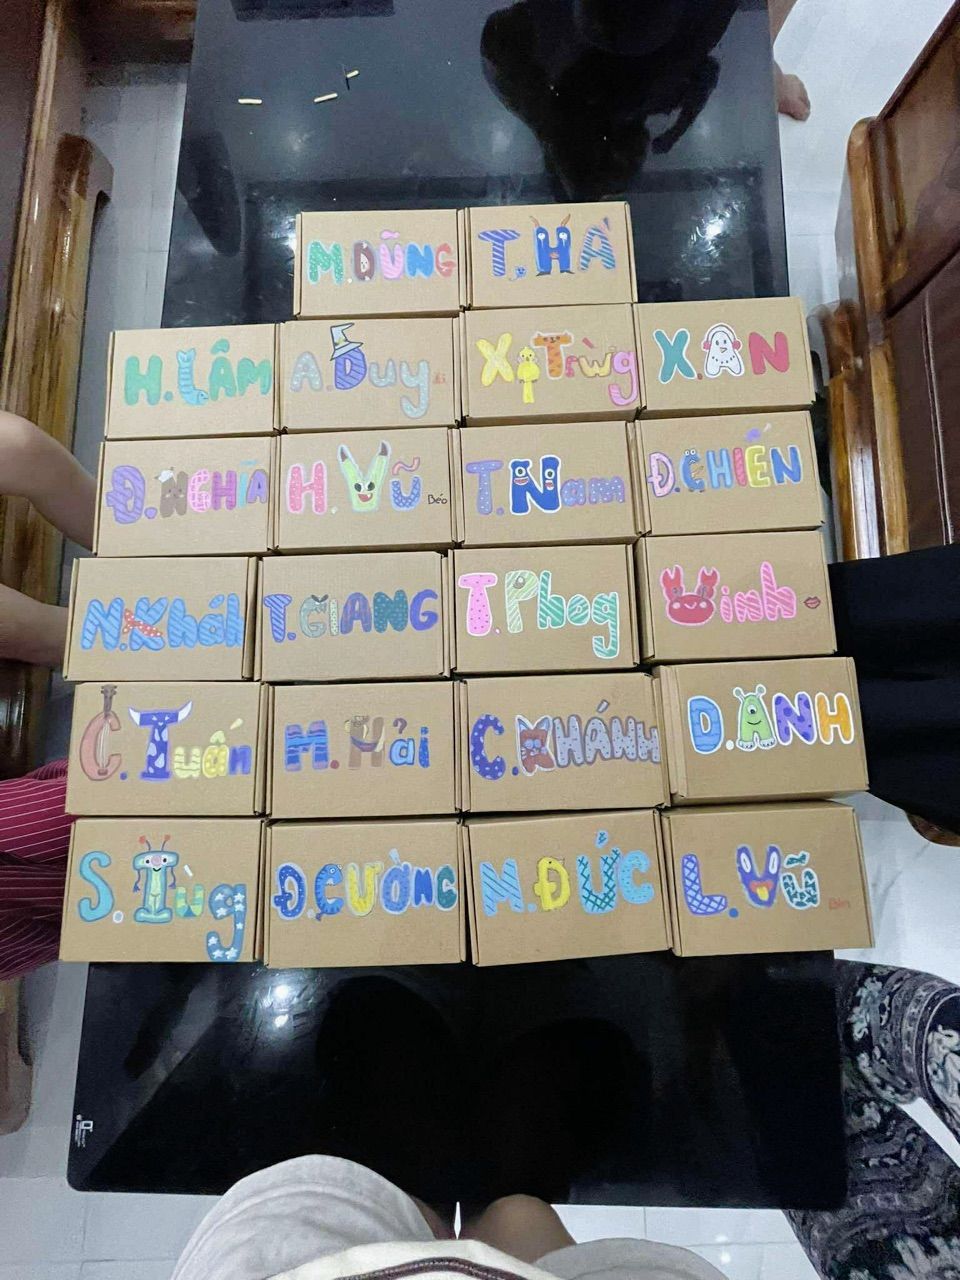 M.DŨNG
T.HÀ
H.LÂM
A.Duy
X.Trừg
X.AN
Đ.NGHĨA
H.Vũ Béo
T.Nam
Đ.CHIẾN
N.Khải
T.GIANG
T.Phog
Vinh
C.Tuấn
M.Hải
C.KHÁNH
D.ÁNH
S.Tùg
Đ.CƯỜNG
M.ĐỨC
L.Vũ